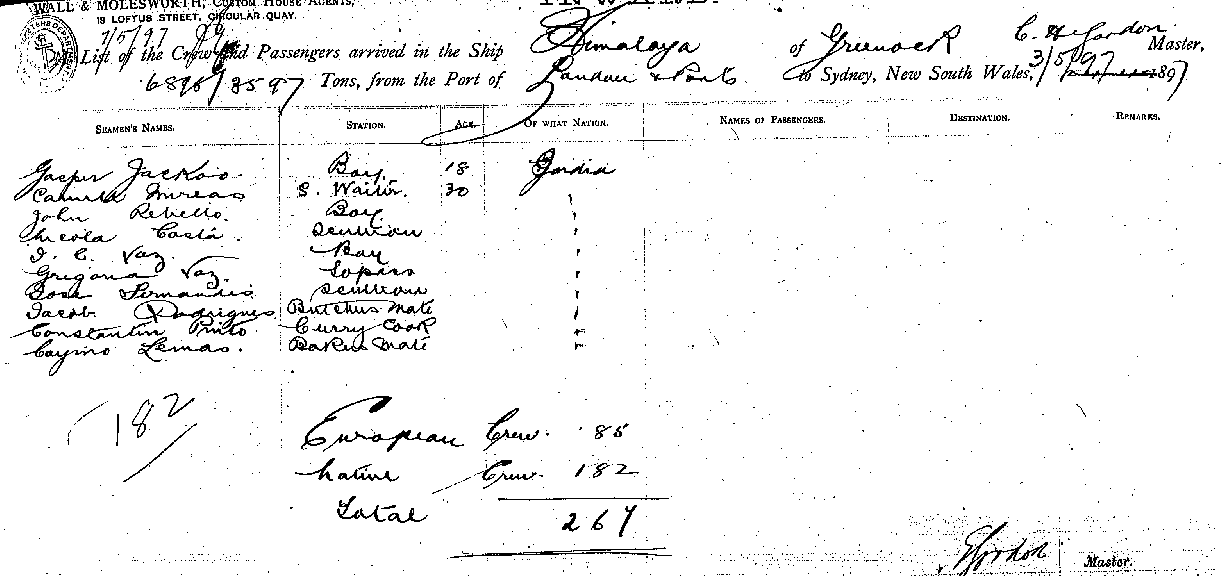 WALL & MOLESWORTH, CUSTOM HOUSE AGENTS,
19 LOFTUS STREET, CIRCULAR QUAY.
7/5/97
List of the Crew and Passengers arrived in the Ship Himalaya of Greenock C. H. Gordon Master,
6898/3597 Tons, from the Port of London & Ports to Sydney, New South Wales, 3/5/97 1897
SEAMEN'S NAMES. STATION. AGE. OF WHAT NATION. NAMES OF PASSENGERS. DESTINATION. REMARKS.
Gasper Jackao Boy 18
S. Waiter. 30
John Rebello. Boy
Nicola Costa. Scullion
I. C. Vaz. Boy
Vaz. Topiss
Jose Fernandis Scullion
Jacob Rodrigues Butchers Mate
Constantin Pinto. Curry Cook
Caymo Lemas. Bakers Mate
182
European Crew. 85
Native Crew. 182
Total 267
Gordon Master.